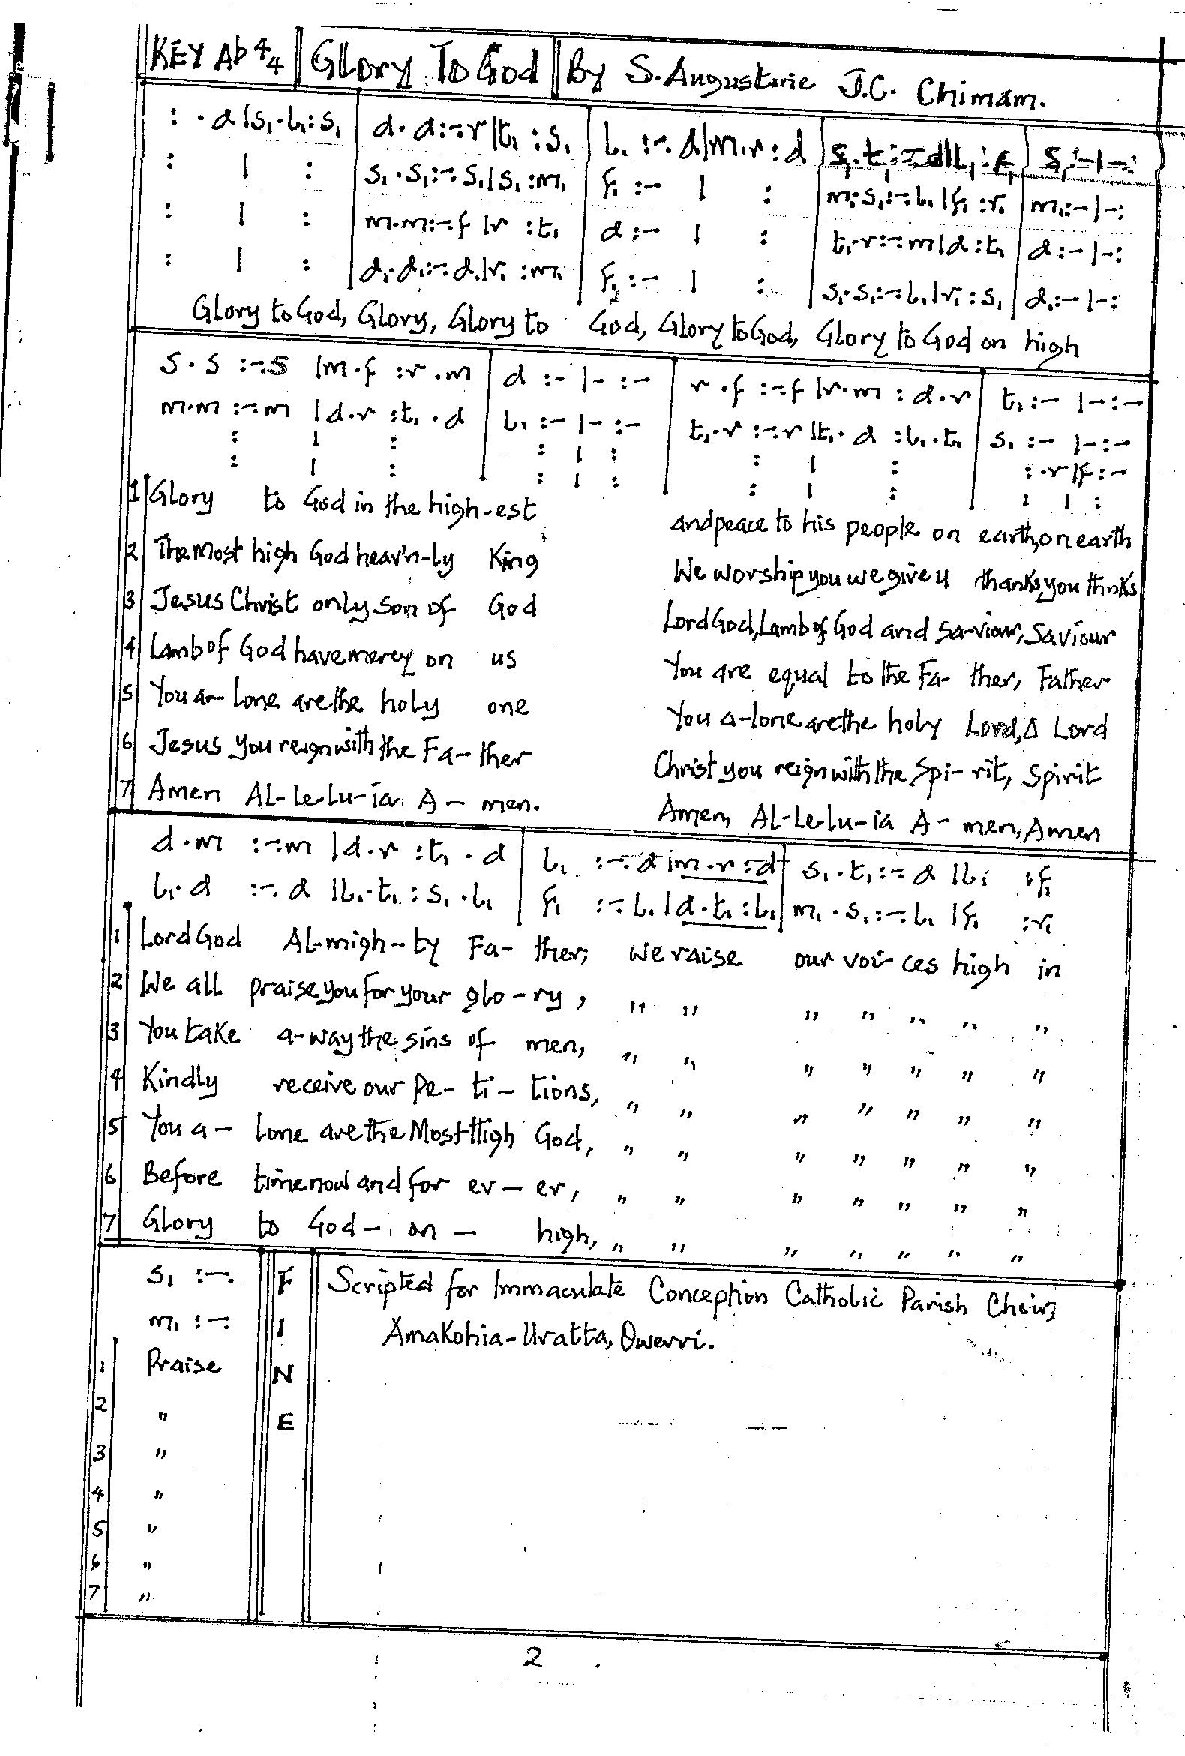 KEY Ab 4/4 Glory To God By S. Augustine J.C. Chimam.
: . d |s₁ . l₁ : s₁ | d . d : - . r | t₁ : s₁ | l₁ : - . d | m . r : d | s₁ . t₁ : - . d | l₁ : f₁ | s₁ : - | - :
: | : | s₁ . s₁ : - . s₁ | s₁ : m₁ | f₁ : - | : | m₁ . s₁ : - . l₁ | f₁ : r₁ | m₁ : - | - :
: | : | m . m : - . f | r : t₁ | d : - | : | t₁ . r : - . m | d : t₁ | d : - | - :
: | : | d₁ . d₁ : - . d₁ | r₁ : m₁ | f₁ : - | : | s₁ . s₁ : - . l₁ | r₁ : s₁ | d₁ : - | - :
Glory to God, Glory, Glory to God, Glory to God, Glory to God on high
s . s : - . s | m . f : r . m | d : - | - : - | r . f : - . f | r . m : d . r | t₁ : - | - : -
m . m : - . m | d . r : t₁ . d | l₁ : - | - : - | t₁ . r : - . r | t₁ . d : l₁ . t₁ | s₁ : - | - : -
: | : | : | : | : | : | : . r | f : -
: | : | : | : | : | : | : | :
1 Glory to God in the high-est and peace to his people on earth, on earth
2 The Most high God heav'n-ly King We worship you we give u thanks, you thnks
3 Jesus Christ only Son of God Lord God, Lamb of God and Sa-viour, Saviour
4 Lamb of God have mercy on us You are equal to the Fa- ther, Father
5 You a- lone are the holy one You a-lone are the holy Lord, Lord
6 Jesus you reign with the Fa-ther Christ you reign with the Spi-rit, Spirit
7 Amen AL-Le-Lu-ia A- men. Amen, AL-Le-Lu-ia A- men, Amen
d . m : - . m | d . r : t₁ . d | l₁ : - . d | m . r : d | s₁ . t₁ : - . d | l₁ : f₁
l₁ . d : - . d | l₁ . t₁ : s₁ . l₁ | f₁ : - . l₁ | d . t₁ : l₁ | m₁ . s₁ : - . l₁ | f₁ : r₁
1 Lord God AL-migh-ty Fa- ther, we raise our voi-ces high in
2 We all praise you for your glo-ry, " " " " " " "
3 You take a-way the sins of men, " " " " " " "
4 Kindly receive our Pe- ti- tions, " " " " " " "
5 You a- lone are the Most High God, " " " " " " "
6 Before time now and for ev- er, " " " " " " "
7 Glory to God- on - high, " " " " " " "
s₁ : - . F Scripted for Immaculate Conception Catholic Parish Choir,
m₁ : - . I Amakohia-Uratta, Owerri.
1 Praise N
2 " E
3 "
4 "
5 "
6 "
7 "
2